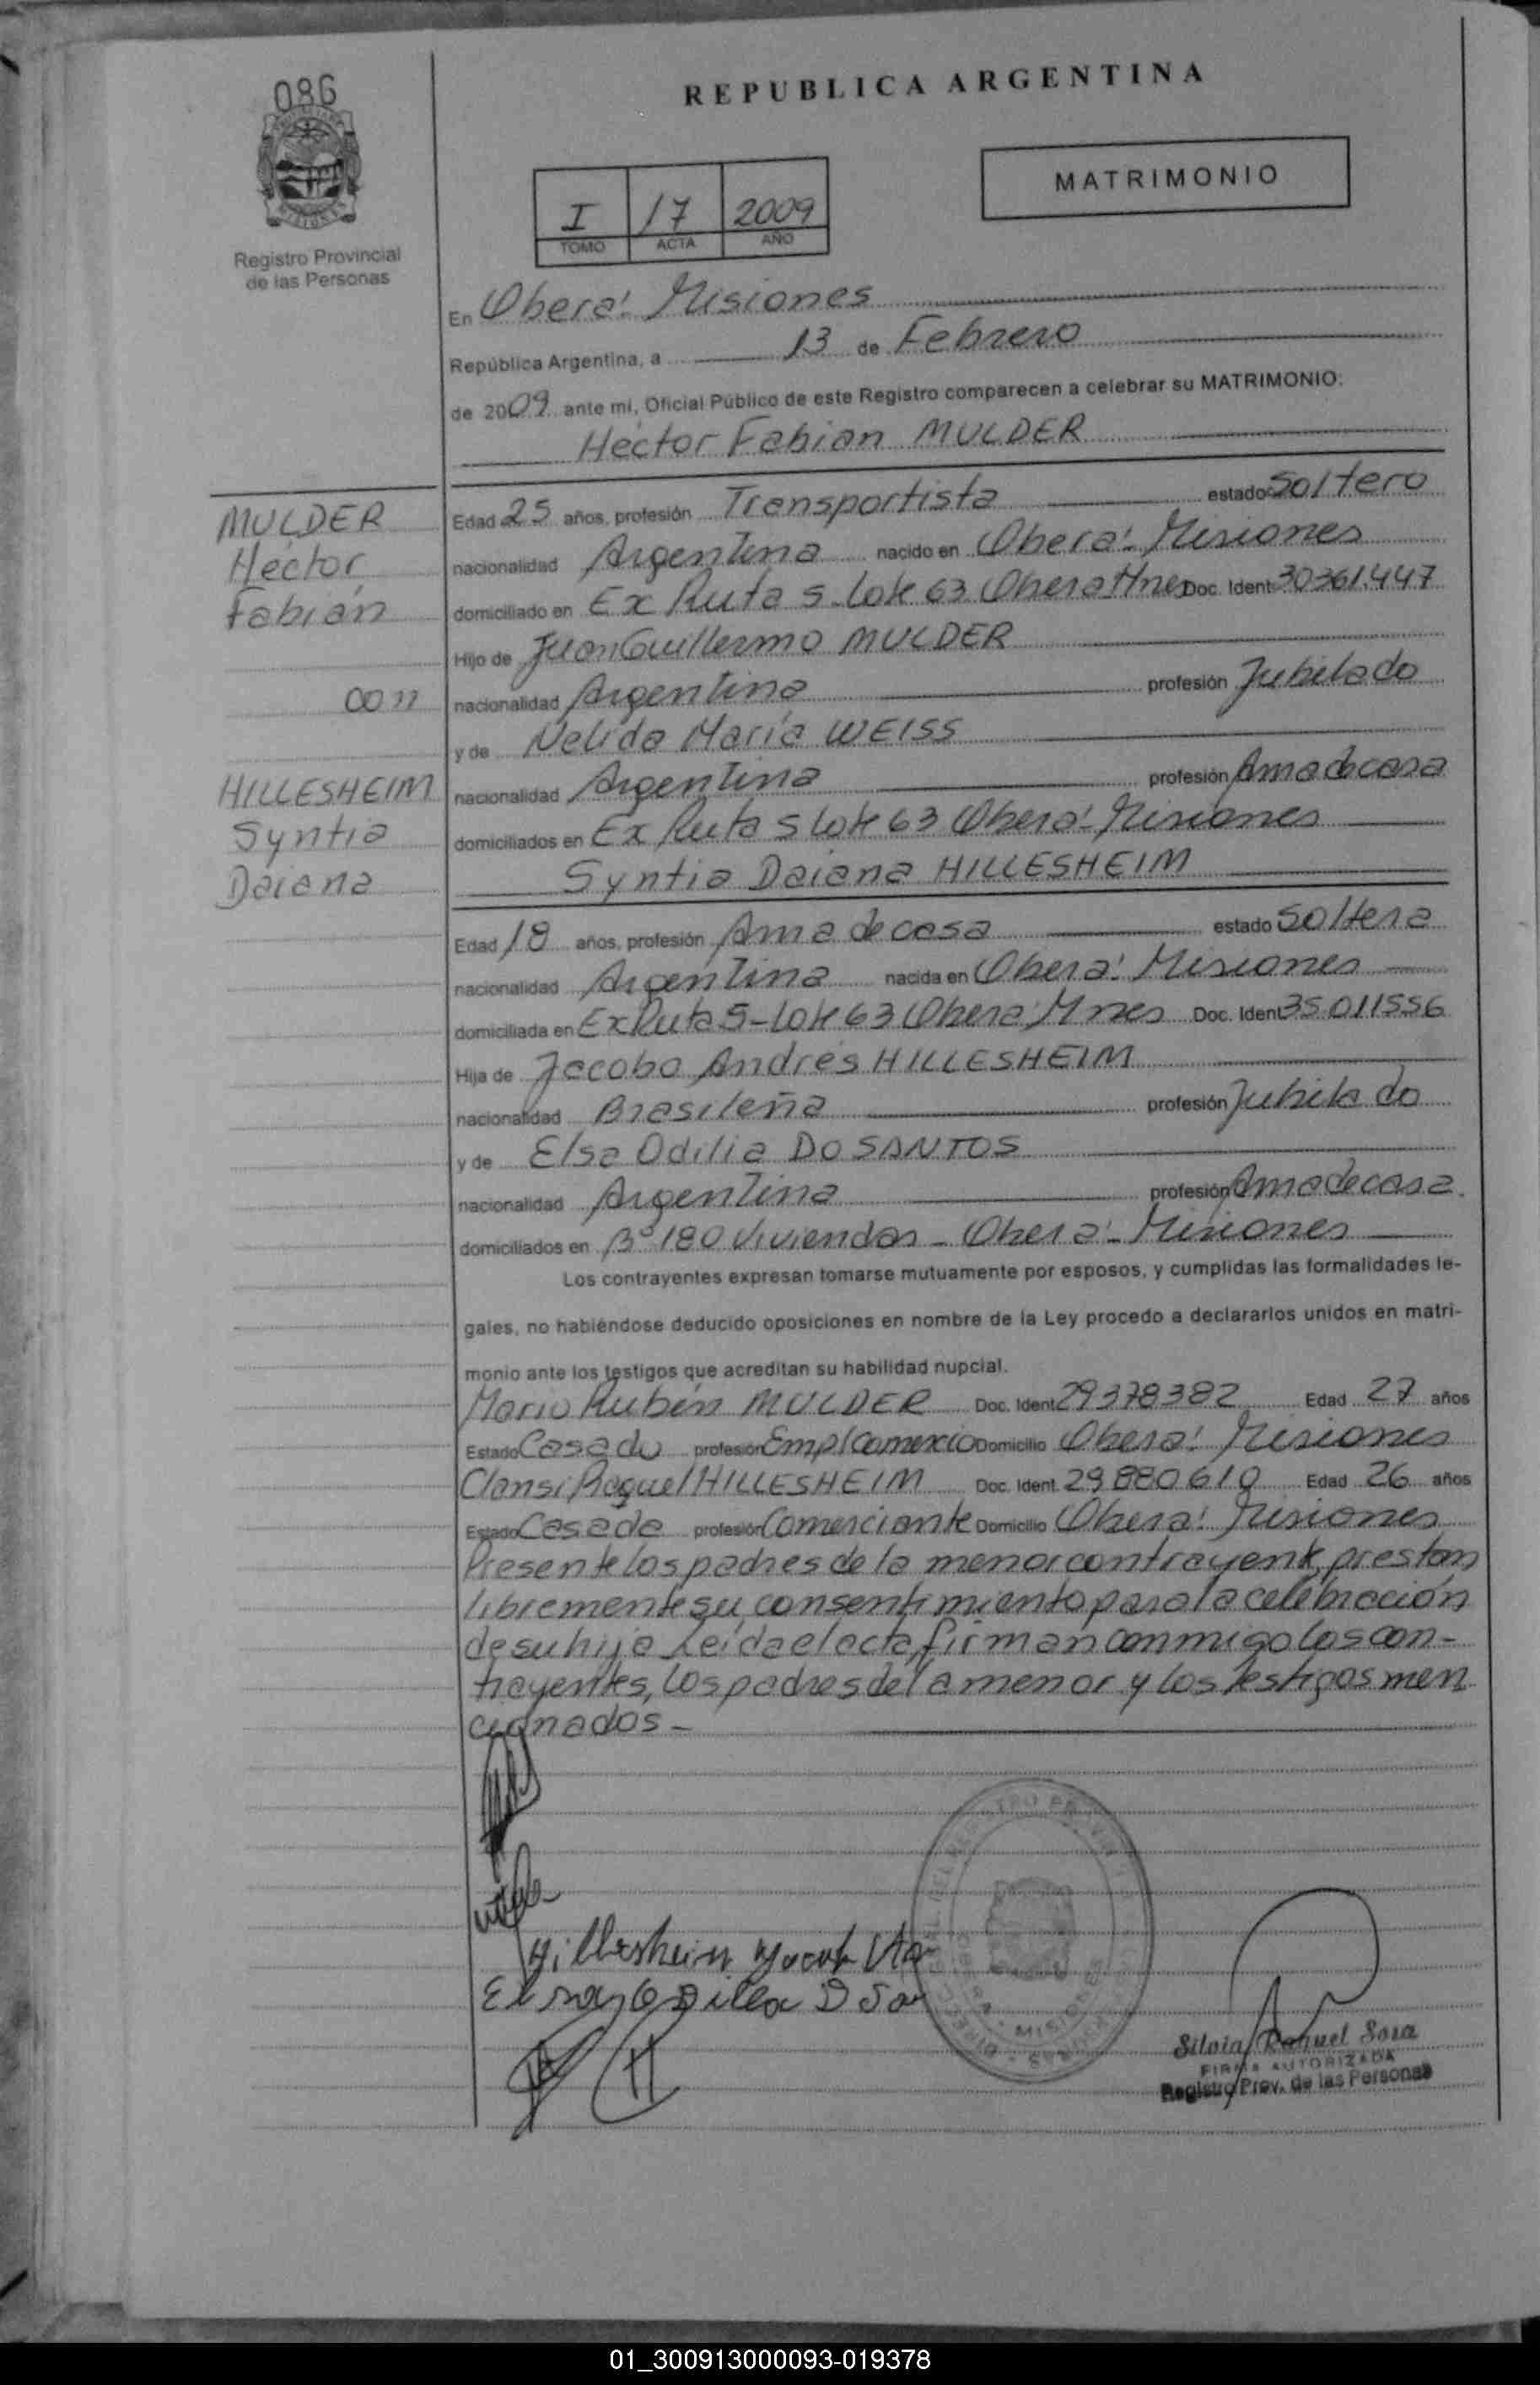 086
REPUBLICA ARGENTINA
MATRIMONIO
I 17 2009
TOMO ACTA AÑO
Registro Provincial
de las Personas
En Oberá - Misiones
República Argentina, a 13 de Febrero
de 2009 ante mi, Oficial Público de este Registro comparecen a celebrar su MATRIMONIO:
Héctor Fabian MULDER
MULDER
Héctor
Fabián
con
HILLESHEIM
Syntia
Daiana
Edad 25 años, profesión Transportista estado Soltero
nacionalidad Argentina nacido en Oberá - Misiones
domiciliado en Ex Ruta 5 - Lote 63 Oberá Mnes Doc. Ident. 30361.447
Hijo de Juan Guillermo MULDER
nacionalidad Argentina profesión Jubilado
y de Nelida María WEISS
nacionalidad Argentina profesión Ama de casa
domiciliados en Ex Ruta 5 Lote 63 Oberá - Misiones
Syntia Daiana HILLESHEIM
Edad 18 años, profesión Ama de casa estado Soltera
nacionalidad Argentina nacida en Oberá - Misiones
domiciliada en Ex Ruta 5 - Lote 63 Oberá Mnes Doc. Ident. 35.011556
Hija de Jacobo Andrés HILLESHEIM
nacionalidad Brasileña profesión Jubilado
y de Elsa Odilia DO SANTOS
nacionalidad Argentina profesión Ama de casa.
domiciliados en B° 180 Viviendas - Oberá - Misiones
Los contrayentes expresan tomarse mutuamente por esposos, y cumplidas las formalidades le-
gales, no habiéndose deducido oposiciones en nombre de la Ley procedo a declararlos unidos en matri-
monio ante los testigos que acreditan su habilidad nupcial.
Mario Rubén MULDER Doc. Ident. 29378382 Edad 27 años
Estado Casado profesión Empl Comercio Domicilio Oberá - Misiones
Clansi Raquel HILLESHEIM Doc. Ident. 29880610 Edad 26 años
Estado Casada profesión Comerciante Domicilio Oberá - Misiones
Presente los padres de la menor contrayente, prestan
libremente su consentimiento para la celebración
de su hija Leída el acta, firman conmigo los con-
trayentes, los padres de la menor y los testigos men
cionados -
Hillesheim
Silvia Raquel Sosa
FIRMA AUTORIZADA
Registro Prov. de las Personas
MISIONES
01_300913000093-019378